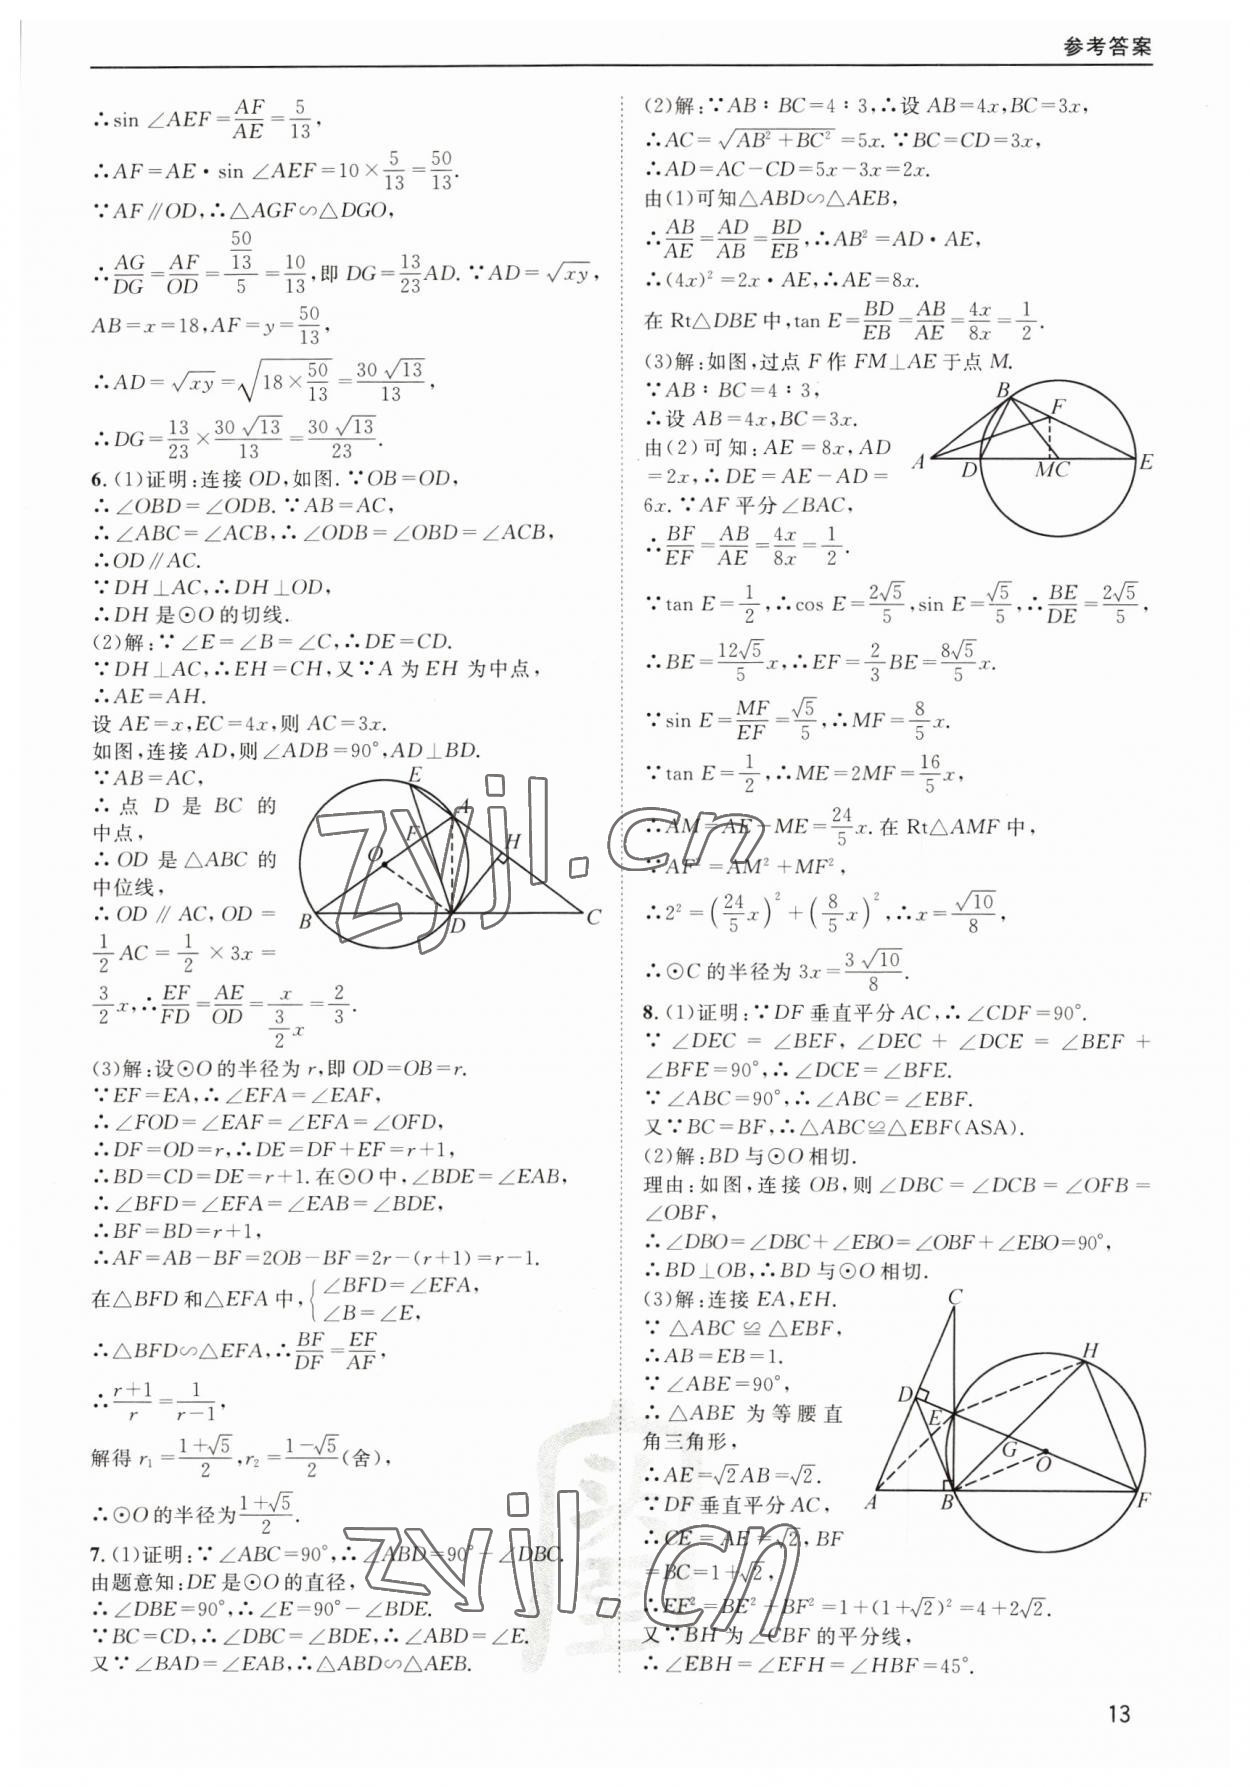 参考答案
∴sin ∠AEF=AF/AE=5/13,
∴AF=AE·sin ∠AEF=10×5/13=50/13.
∵AF∥OD,∴△AGF∽△DGO,
∴AG/DG=AF/OD=(50/13)/5=10/13,即 DG=13/23AD.∵AD=√xy,
AB=x=18,AF=y=50/13,
∴AD=√xy=√(18×50/13)=30√13/13,
∴DG=13/23×30√13/13=30√13/23.
6.(1)证明:连接 OD,如图.∵OB=OD,
∴∠OBD=∠ODB.∵AB=AC,
∴∠ABC=∠ACB,∴∠ODB=∠OBD=∠ACB,
∴OD∥AC.
∵DH⊥AC,∴DH⊥OD,
∴DH 是⊙O 的切线.
(2)解:∵∠E=∠B=∠C,∴DE=CD.
∵DH⊥AC,∴EH=CH,又∵A 为 EH 为中点,
∴AE=AH.
设 AE=x,EC=4x,则 AC=3x.
如图,连接 AD,则∠ADB=90°,AD⊥BD.
∵AB=AC,
∴点 D 是 BC 的
中点,
∴OD 是△ABC 的
中位线,
∴OD∥AC,OD=
1/2AC=1/2×3x=
3/2x,∴EF/FD=AE/OD=x/(3/2x)=2/3.
E A F H O B D C
(3)解:设⊙O 的半径为 r,即 OD=OB=r.
∵EF=EA,∴∠EFA=∠EAF,
∴∠FOD=∠EAF=∠EFA=∠OFD,
∴DF=OD=r,∴DE=DF+EF=r+1,
∴BD=CD=DE=r+1.在⊙O 中,∠BDE=∠EAB,
∴∠BFD=∠EFA=∠EAB=∠BDE,
∴BF=BD=r+1,
∴AF=AB−BF=2OB−BF=2r−(r+1)=r−1.
在△BFD 和△EFA 中,{∠BFD=∠EFA,
∠B=∠E,
∴△BFD∽△EFA,∴BF/DF=EF/AF,
∴(r+1)/r=1/(r−1),
解得 r₁=(1+√5)/2,r₂=(1−√5)/2(舍),
∴⊙O 的半径为(1+√5)/2.
7.(1)证明:∵∠ABC=90°,∴∠ABD=90°−∠DBC.
由题意知:DE 是⊙O 的直径,
∴∠DBE=90°,∴∠E=90°−∠BDE.
∵BC=CD,∴∠DBC=∠BDE,∴∠ABD=∠E.
又∵∠BAD=∠EAB,∴△ABD∽△AEB.
(2)解:∵AB∶BC=4∶3,∴设 AB=4x,BC=3x,
∴AC=√(AB²+BC²)=5x.∵BC=CD=3x,
∴AD=AC−CD=5x−3x=2x.
由(1)可知△ABD∽△AEB,
∴AB/AE=AD/AB=BD/EB,∴AB²=AD·AE,
∴(4x)²=2x·AE,∴AE=8x.
在 Rt△DBE 中,tan E=BD/EB=AB/AE=4x/8x=1/2.
(3)解:如图,过点 F 作 FM⊥AE 于点 M.
∵AB∶BC=4∶3,
∴设 AB=4x,BC=3x.
由(2)可知:AE=8x,AD
=2x,∴DE=AE−AD=
6x.∵AF 平分∠BAC,
B F A D MC E
∴BF/EF=AB/AE=4x/8x=1/2.
∵tan E=1/2,∴cos E=2√5/5,sin E=√5/5,∴BE/DE=2√5/5,
∴BE=12√5/5x,∴EF=2/3BE=8√5/5x.
∵sin E=MF/EF=√5/5,∴MF=8/5x.
∵tan E=1/2,∴ME=2MF=16/5x,
∴AM=AE−ME=24/5x.在 Rt△AMF 中,
∵AF²=AM²+MF²,
∴2²=(24/5x)²+(8/5x)²,∴x=√10/8,
∴⊙C 的半径为 3x=3√10/8.
8.(1)证明:∵DF 垂直平分 AC,∴∠CDF=90°.
∵∠DEC=∠BEF,∠DEC+∠DCE=∠BEF+
∠BFE=90°,∴∠DCE=∠BFE.
∵∠ABC=90°,∴∠ABC=∠EBF.
又∵BC=BF,∴△ABC≌△EBF(ASA).
(2)解:BD 与⊙O 相切.
理由:如图,连接 OB,则∠DBC=∠DCB=∠OFB=
∠OBF,
∴∠DBO=∠DBC+∠EBO=∠OBF+∠EBO=90°,
∴BD⊥OB,∴BD 与⊙O 相切.
(3)解:连接 EA,EH.
∵△ABC≌△EBF,
∴AB=EB=1.
∵∠ABE=90°,
∴△ABE 为等腰直
角三角形,
∴AE=√2AB=√2.
∵DF 垂直平分 AC,
∴CE=AE=√2,BF
=BC=1+√2,
C H D E G O A B F
∴EF²=BE²+BF²=1+(1+√2)²=4+2√2.
又∵BH 为∠CBF 的平分线,
∴∠EBH=∠EFH=∠HBF=45°.
zyjl.cn
zyjl.cn
13